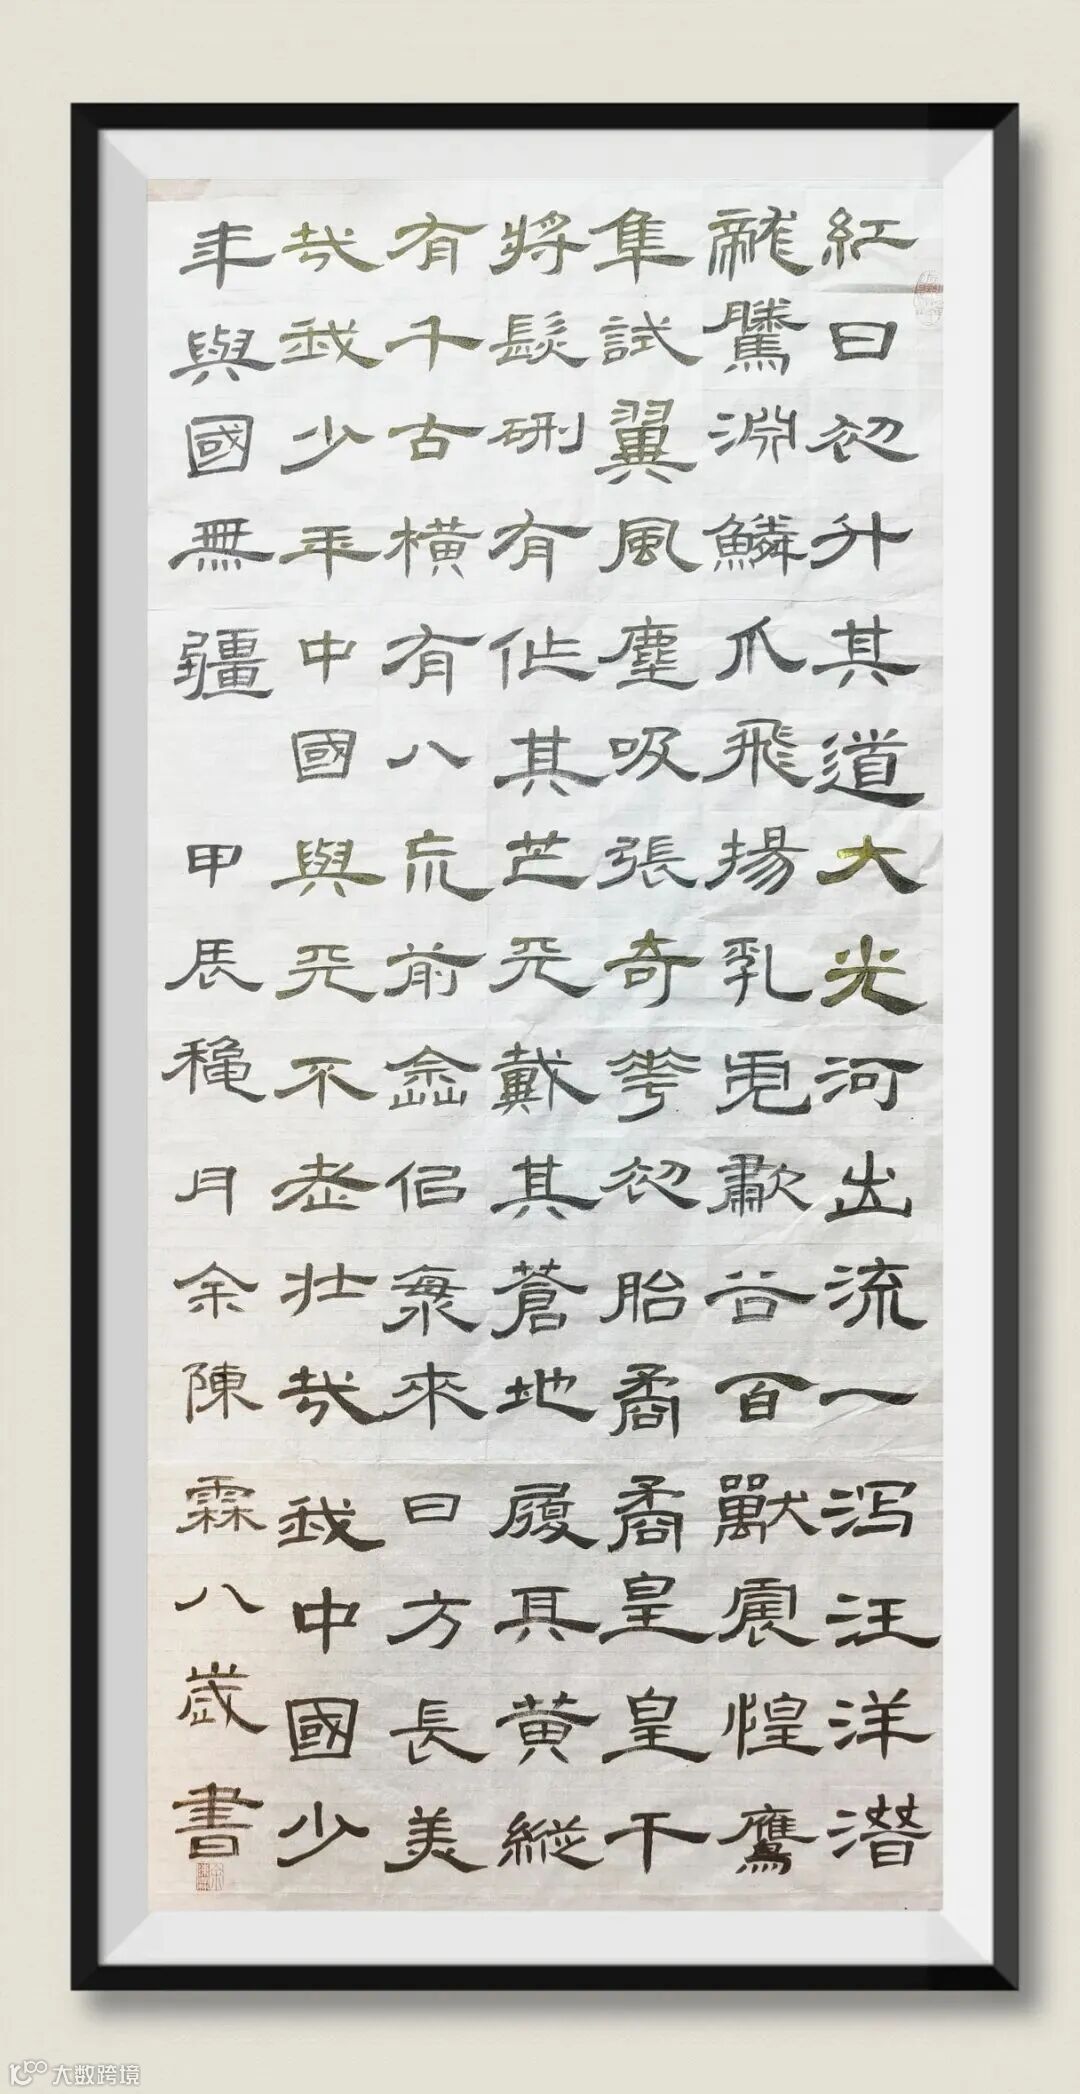 紅日初升其道大光河出流一泻汪洋潛
龍騰淵鱗爪飛揚乳虎歗谷百獸震惶鷹
隼試翼風塵吸張奇花初胎矞矞皇皇干
將髮硎有作其芒天戴其蒼地履其黄縱
有千古橫有八荒前途佀海來日方長美
哉我少年中國與天不老壯哉我中國少
年與國無疆 甲辰龝月余陳霖八歲書
大数跨境